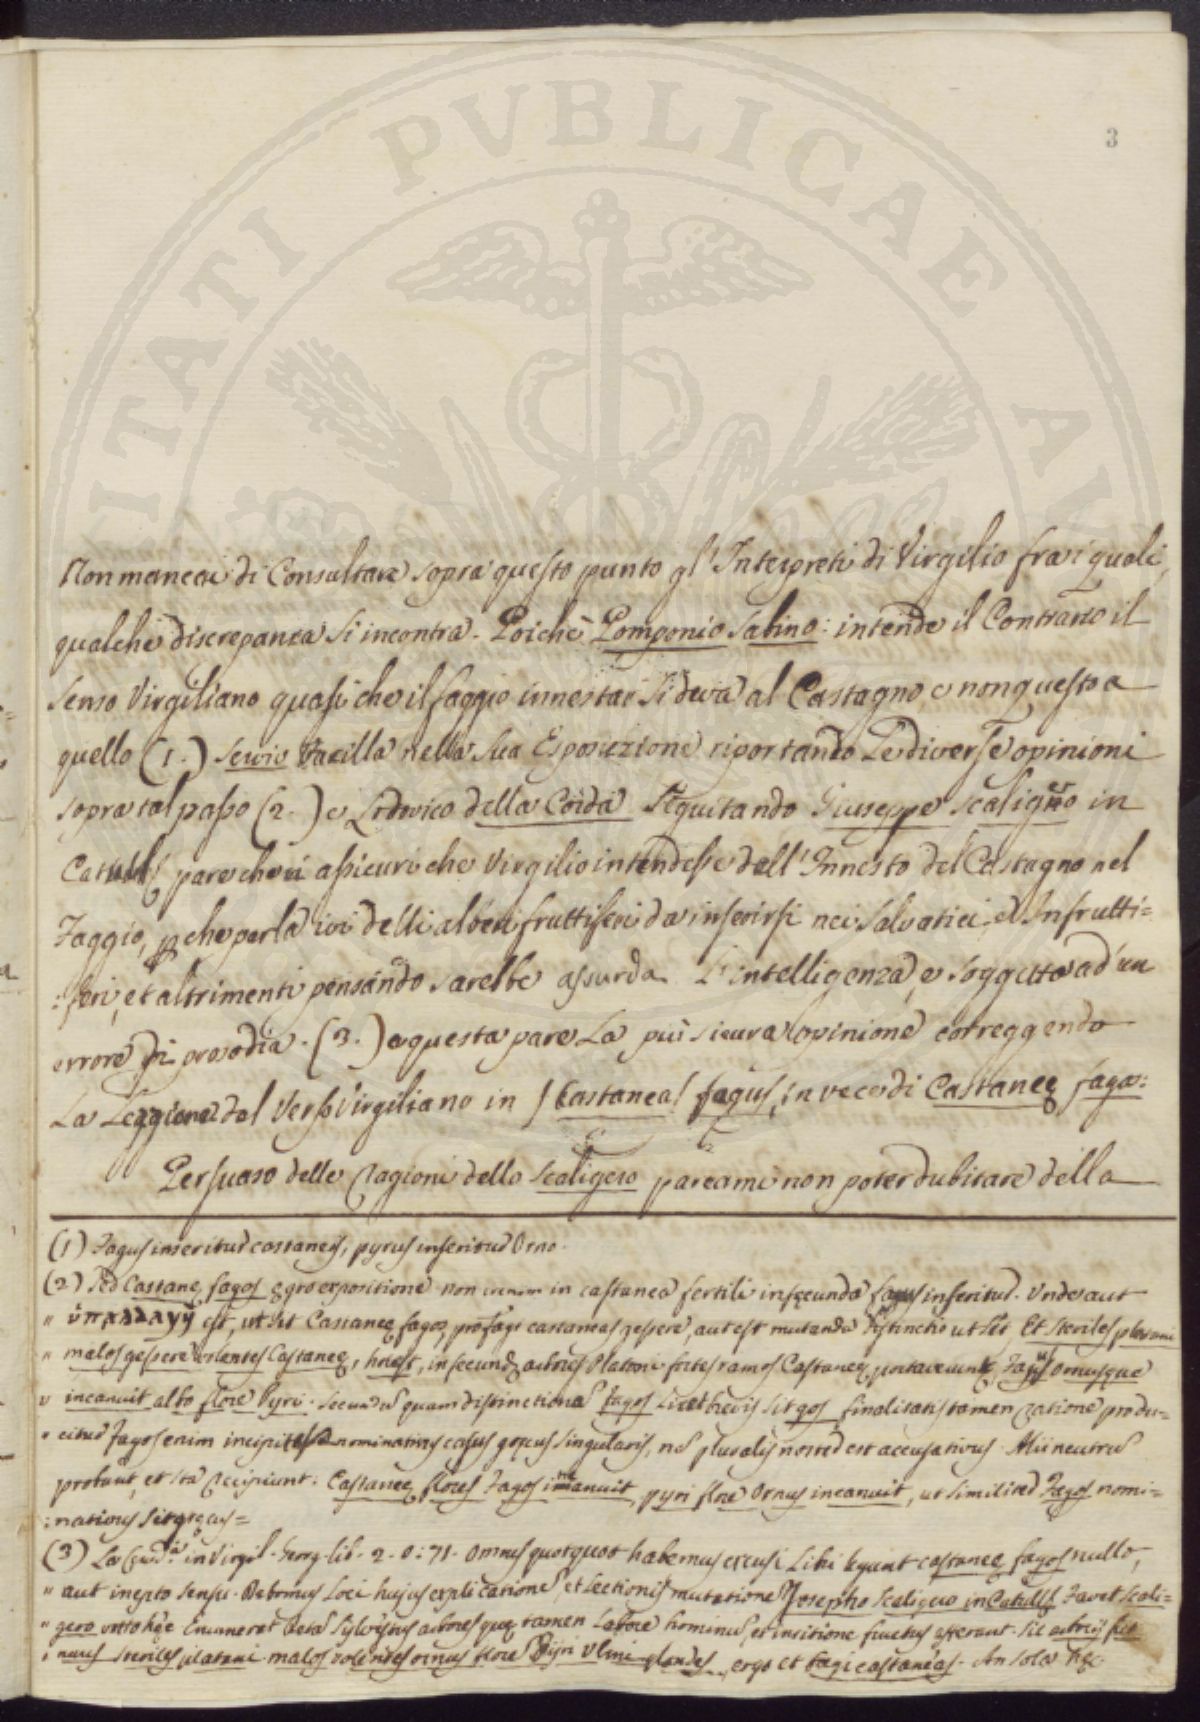 UTILITATI PUBLICAE AU
3
Non mancai di Consultare sopra questo punto gl'Interpreti di Virgilio fra i quali
qualche discrepanza si incontra. Poichè Pomponio Sabino: intende il Contrario il
senso Virgiliano quasi che il faggio innestar si deva al Castagno e non questo a
quello (1.) Servio Vacilla nella sua Esposizione riportando Le diverse opinioni
sopra tal passo (2.) e Lodovico della Cerda Seguitando Giuseppe Scaligero in
pare che ci assicuri che Virgilio intendesse dell'Innesto del Castagno nel
Faggio, che parla ivi delli alberi fruttiferi da inserirsi nei salvatici, ed Infrutti=
:feri, et altrimenti pensando sarebbe assurda L'intelligenza, e soggetta ad un
errore di prosodia. (3.) e questa pare La più sicura opinione correggendo
La Lezzione del Verso Virgiliano in Castaneas fagus, in vece di Castaneę fagos:
Persuaso delle ragioni dello Scaligero pareami non poter dubitare della
(1) Fagus inseritur castaneis, pyrus inseritur Orno.
(2) Sed Castaneę fagos non in castanea fertili infęcunda fagus inseritur. Unde aut
" est, ut sit Castaneę fagos, pro fagi castaneas gessere, aut est mutanda distinctio ut sit Et steriles platani
" malos gessere valentes Castaneę, hoc est, infecundę arbores Platani fortes ramos Castaneę portaverunt, Fagus Ornusque
" incanuit albo flore Pyri. Secundum quam distinctionem fagos Licet brevis sit gos finalitatis tamen ratione produ-
" citur Fagos enim nominativus casus gręcus singularis, non pluralis noster est accusativus. Alii neutrum
probant, et ita accipiunt: Castaneę flores Fagos incanuit, pyri flore Ornus incanuit, ut similiter Fagos nomi=
:nativus sit gręcus=
(3) La Cerda in Virgil. Georg. lib. 2. v: 71. Omnes quotquot habemus excusi Libri legunt castaneę fagos nullo,
" aut inepto sensu. Debemus Loci hujus explicationem, et Lectionis mutationem Josepho Scaligero in Favet Scali=
" gero Enumerat arbores quę tamen Labore hominum, et insitione fructus afferant. Sic
steriles platani malos valentes ornus flore Pyri Ulmi glandes, ergo et fagi castaneas. An sola hęc